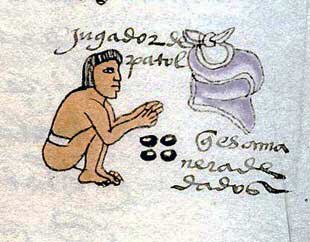 Jugador de
patol
q̃ es a ma
nera de
dados